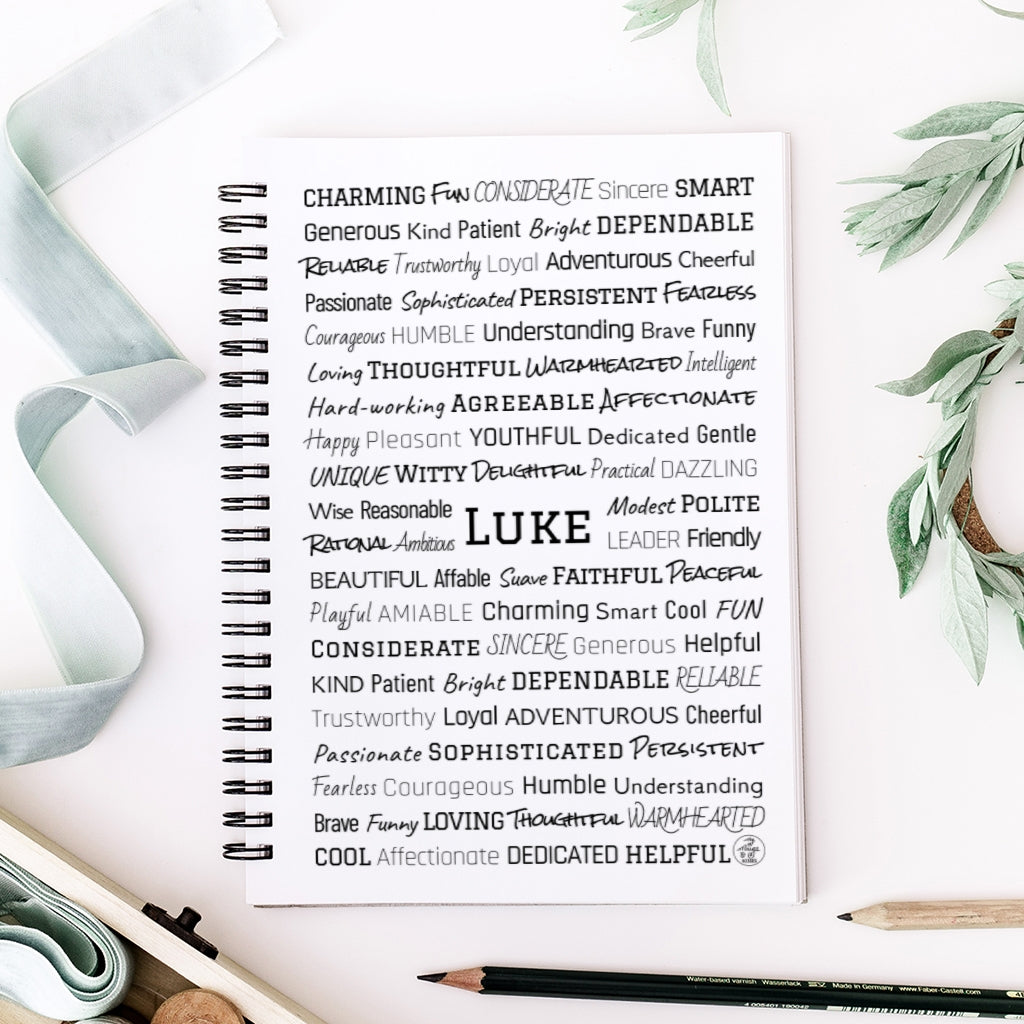 CHARMING FUN CONSIDERATE Sincere SMART
Generous Kind Patient Bright DEPENDABLE
RELIABLE Trustworthy Loyal Adventurous Cheerful
Passionate Sophisticated PERSISTENT FEARLESS
Courageous HUMBLE Understanding Brave Funny
Loving THOUGHTFUL WARMHEARTED Intelligent
Hard-working AGREEABLE AFFECTIONATE
Happy Pleasant YOUTHFUL Dedicated Gentle
UNIQUE WITTY DELIGHTFUL Practical DAZZLING
Wise Reasonable Modest POLITE
LUKE
RATIONAL Ambitious LEADER Friendly
BEAUTIFUL Affable Suave FAITHFUL PEACEFUL
Playful AMIABLE Charming Smart Cool FUN
CONSIDERATE SINCERE Generous Helpful
KIND Patient Bright DEPENDABLE RELIABLE
Trustworthy Loyal ADVENTUROUS Cheerful
Passionate SOPHISTICATED PERSISTENT
Fearless Courageous Humble Understanding
Brave Funny LOVING THOUGHTFUL WARMHEARTED
COOL Affectionate DEDICATED HELPFUL
Water-based varnish Wasserlack Made in Germany www.Faber-Castell.com